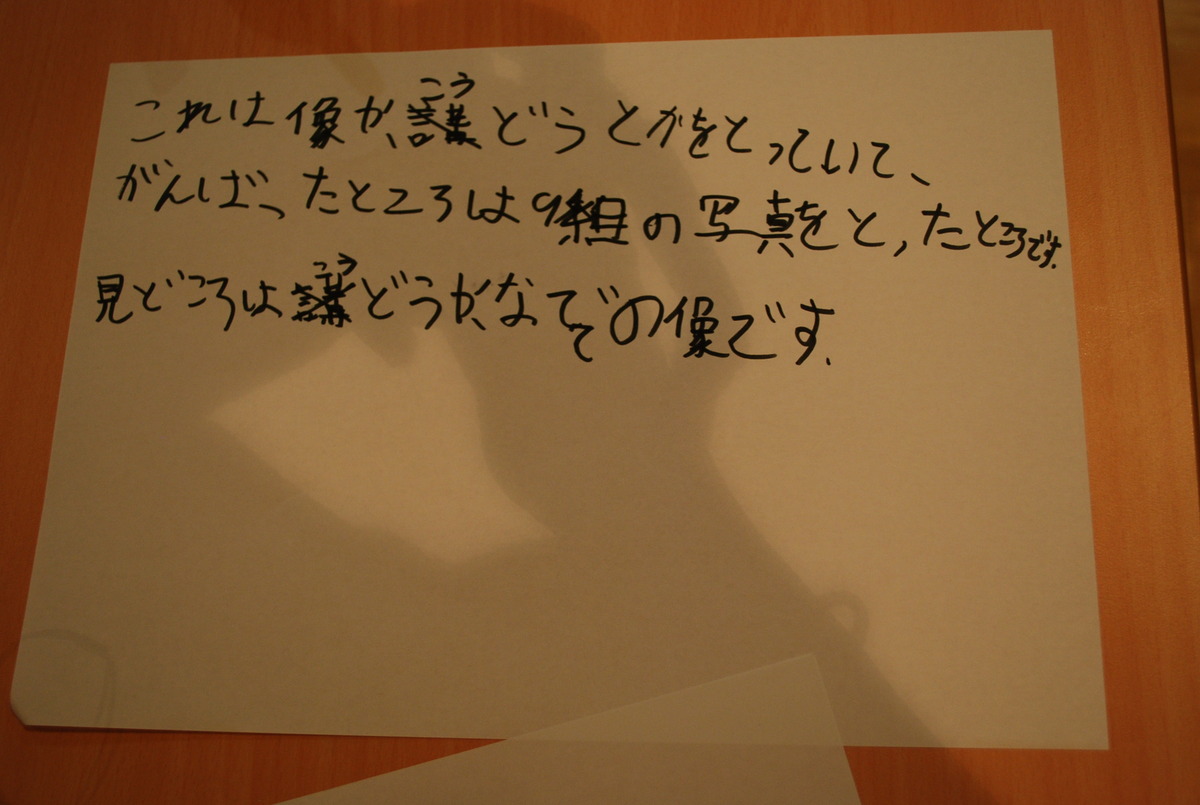 こう
これは像か、講どうとかをとっていて、
がんばったところは9組の写真をとったところです。
こう
見どころは講どうか、なでての像です。